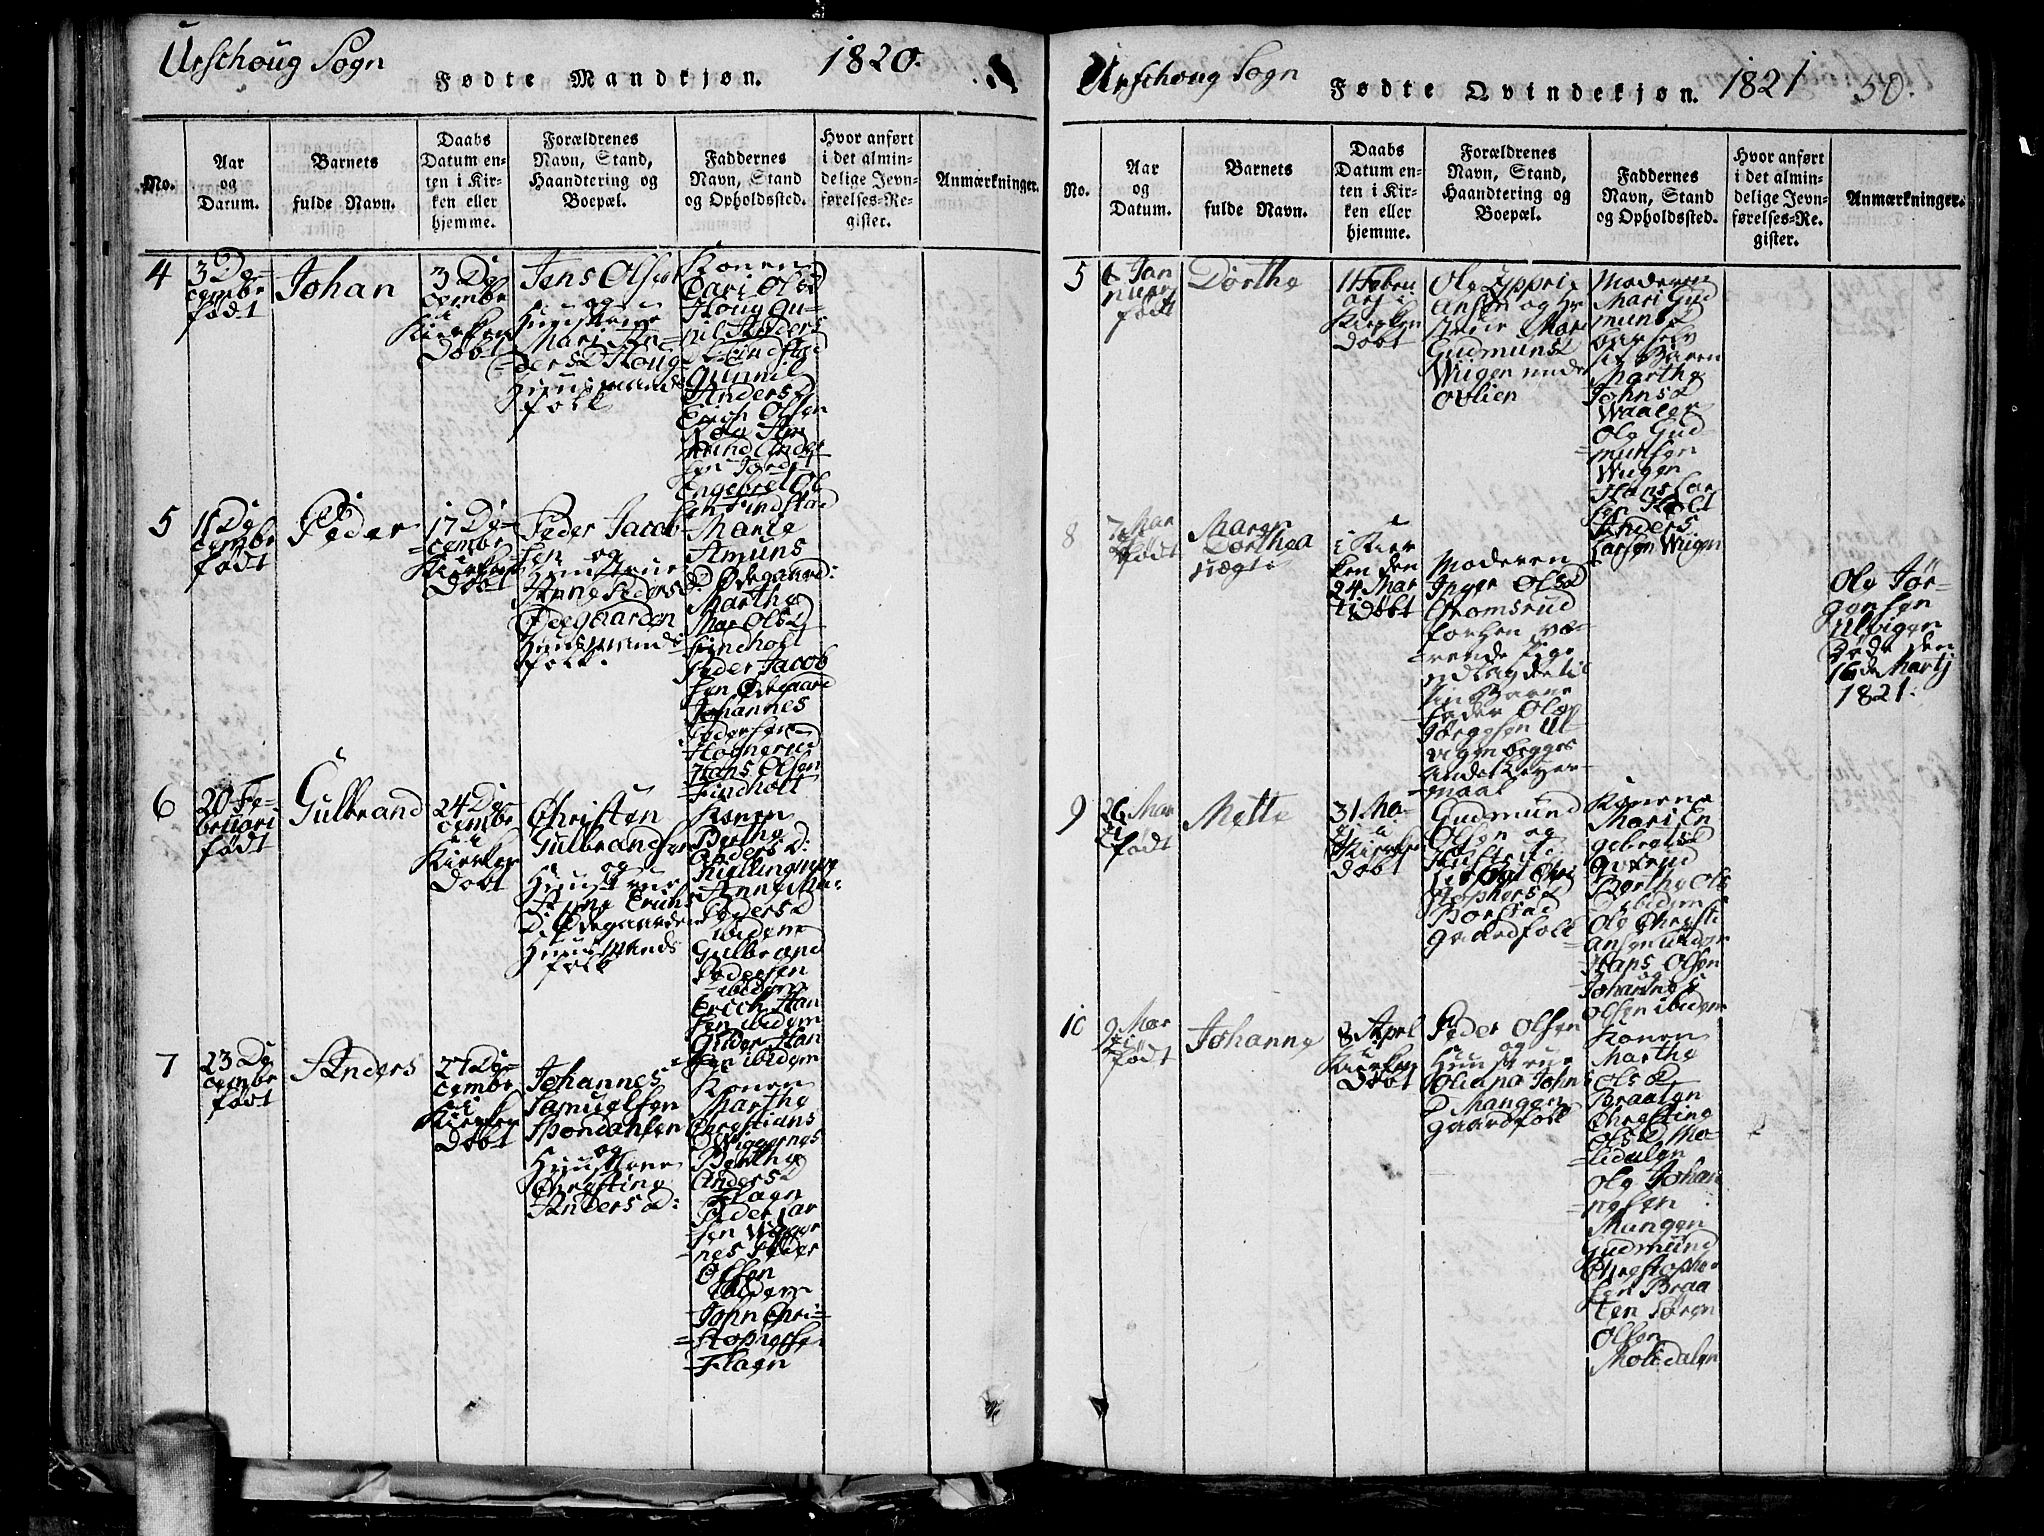 Urschoug Sogn
Fødte Mandkjøn.
1820.
No.
Aar
og
Datum.
Barnets
fulde Navn.
Daabs
Datum en-
ten i Kir-
ken eller
hjemme.
Forældrenes
Navn, Stand,
Haandtering og
Boepæl.
Faddernes
Navn, Stand
og Opholdssted.
Hvor anført
i det almin-
delige Jevn-
førelses-Re-
gister.
Anmærkninger.
4
3 De-
cembr
født
Johan
3 De
cembr
i
Kirken
Døbt
Jens Olsen
og
Huustrue
Mari An-
ders D Houg
Huusmands
folk
Konen
Cari Ols D
Houg Gu-
nil Anders
D Findstad
Gunnil
Anders D
Erich Olsen
Engebret Ol
sen Findstad
5
11 De
cembr
født
Peder
17 De-
cembr
Kirken
Døbt
Peder Jacob
sen og
Huustrue
Anne Peders D
Ødegaarden
Huusmands
folk.
Marte
Amuns
D: Ødegaard:
Marthe
Mar Ols D
Findholt
Peder Jacob
sen Ødegaard
Johannes
Pedersen
Hans Olsen
Findholt
6
20 Fe-
bruari
født
Gulbrand
24 De
cembr
i
Kirken
Døbt
Christen
Gulbrandsen
og
Huustrue
Anne Erichs
D: Ødegaarden
Huusmands
folk
Konen
Berthe
Anders D:
Anne Ma-
Peders D
ibidem
Gulbrand
Pedersen
ibidem
Erich Han
sen ibidem
Peder Han
sen ibidem
7
23 De
cembr
født
Anders
27 De-
cembr
i
Kirken
Døbt
Johannes
Samuelsen
Spondahlen
og
Huustrue
Christine
Anders D:
Konen
Marthe
Christians
D Wigernes
Berthe
Anders D
Flaen
Peder Lar
sen Wiger
nes Peder
Olsen
ibidem
John Chri-
stophersen
Flaen
Urschoug Sogn
Fødte Qvindekjøn.
1821
50.
No.
Aar
og
Datum.
Barnets
fulde Navn.
Daabs
Datum en-
ten i Kir-
ken eller
hjemme.
Forældrenes
Navn, Stand,
Haandtering og
Boepæl.
Faddernes
Navn, Stand
og Opholdssted.
Hvor anført
i det almin-
delige Jevn-
førelses-Re-
gister.
Anmærkninger.
5
6 Jan
nuarj
født
Dorthe
11 Febru
arj i
Kirken
Døbt
Ole Zyppri
ansen og Hu
strue Mari
Gudmuns D
Wiigen under
Ovlien
Moderen
Mari Gud
muns D
bar selv
sit Baren
Marthe
Johns D
Waaler
Ole Gud
munsen
Wiigen
Hans Lar
sen Holt
Anders
Larsen Wiigen
8
7 Mar
tii
født
Maren
Dorthea
uægte
i Kir
ken den
24 Mar
ti Døbt
Moderen
Inger Ols D
Gromsrud
forhen væ-
rende Pige
udlagde til
sin Barne
fader Ole
Jørgesen Ul
vigen begges
andet Leyer-
maal
Ole Jør-
gensen
Ulvigen
Døde den
16de Martj
1821.
9
26 Mar
ti
født
Mette
31 Ma-
rj i
Kirken
Døbt
Gudmund
Olsen og
Hustrue
Chri
stophers D
Borstad
gaardfolk
Konene
Mari En
gebrets D
Berthe Ols
D ibidem
Ole Christi
ansen ibidem
Hans Olsen
og
Johannes
Olsen ibidem
10
9 Mar
ti
født
Johanne
8 April
i
Kirken
Døbt
Peder Olsen
og
Huustrue
Oliana Johns
D Mangen
Gaardfolk
Konen
Marthe
Ols D
Braaten
Christine
Ols D Mo-
lidalen
Ole Johan
nesen
Mangen
Gudmund
Christopher
sen Braa
ten Søren
Olsen
Molidalen